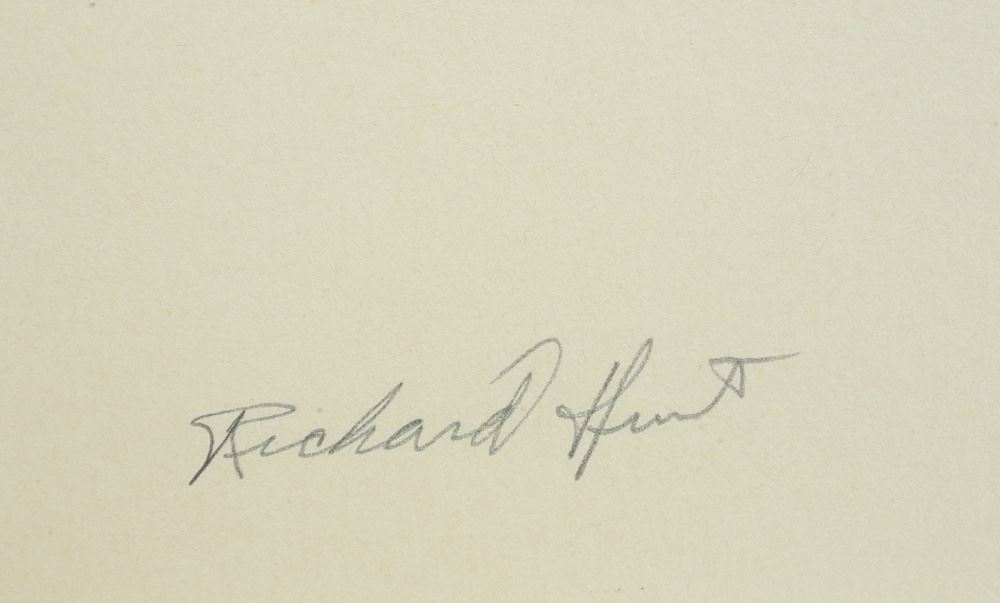 Richard Hunt